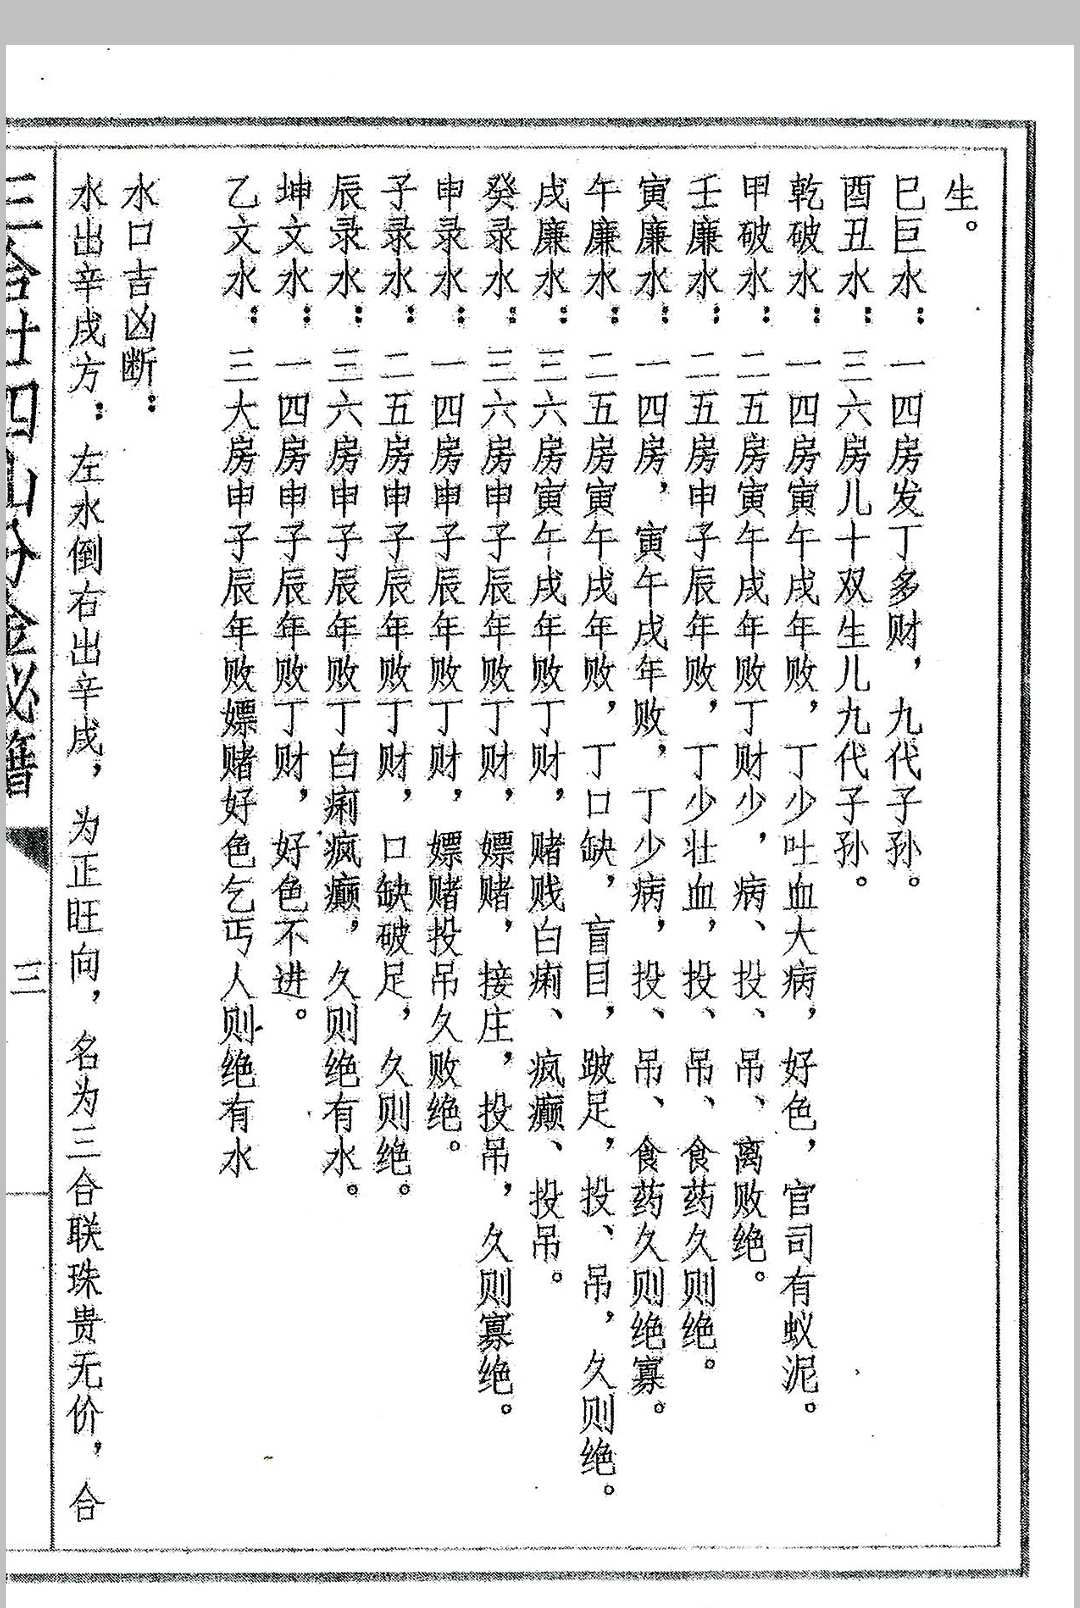 生。
巳巨水：一四房发丁多财，九代子孙。
酉丑水：三六房儿十双生儿九代子孙。
乾破水：一四房寅午戌年败，丁少吐血大病，好色，官司有蚁泥。
甲破水：二五房寅午戌年败丁财少，病、投、吊、离败绝。
壬廉水：二五房申子辰年败，丁少壮血，投、吊、食药久则绝。
寅廉水：一四房，寅午戌年败，丁少病，投、吊、食药久则绝寡。
午廉水：二五房寅午戌年败，丁口缺，盲目，跛足，投、吊，久则绝。
戌廉水：三六房寅午戌年败丁财，赌贱白痢、疯癫、投吊。
癸录水：三六房申子辰年败丁财，嫖赌，接庄，投吊，久则寡绝。
申录水：一四房申子辰年败丁财，嫖赌投吊久败绝。
子录水：二五房申子辰年败丁财，口缺破足，久则绝。
辰录水：三六房申子辰年败丁白痢疯癫，久则绝有水。
坤文水：一四房申子辰年败丁财，好色不进。
乙文水：三大房申子辰年败嫖赌好色乞丐人则绝有水
水口吉凶断：
水出辛戌方：左水倒右出辛戌，为正旺向，名为三合联珠贵无价，合
三合廿四山分金秘籍
三